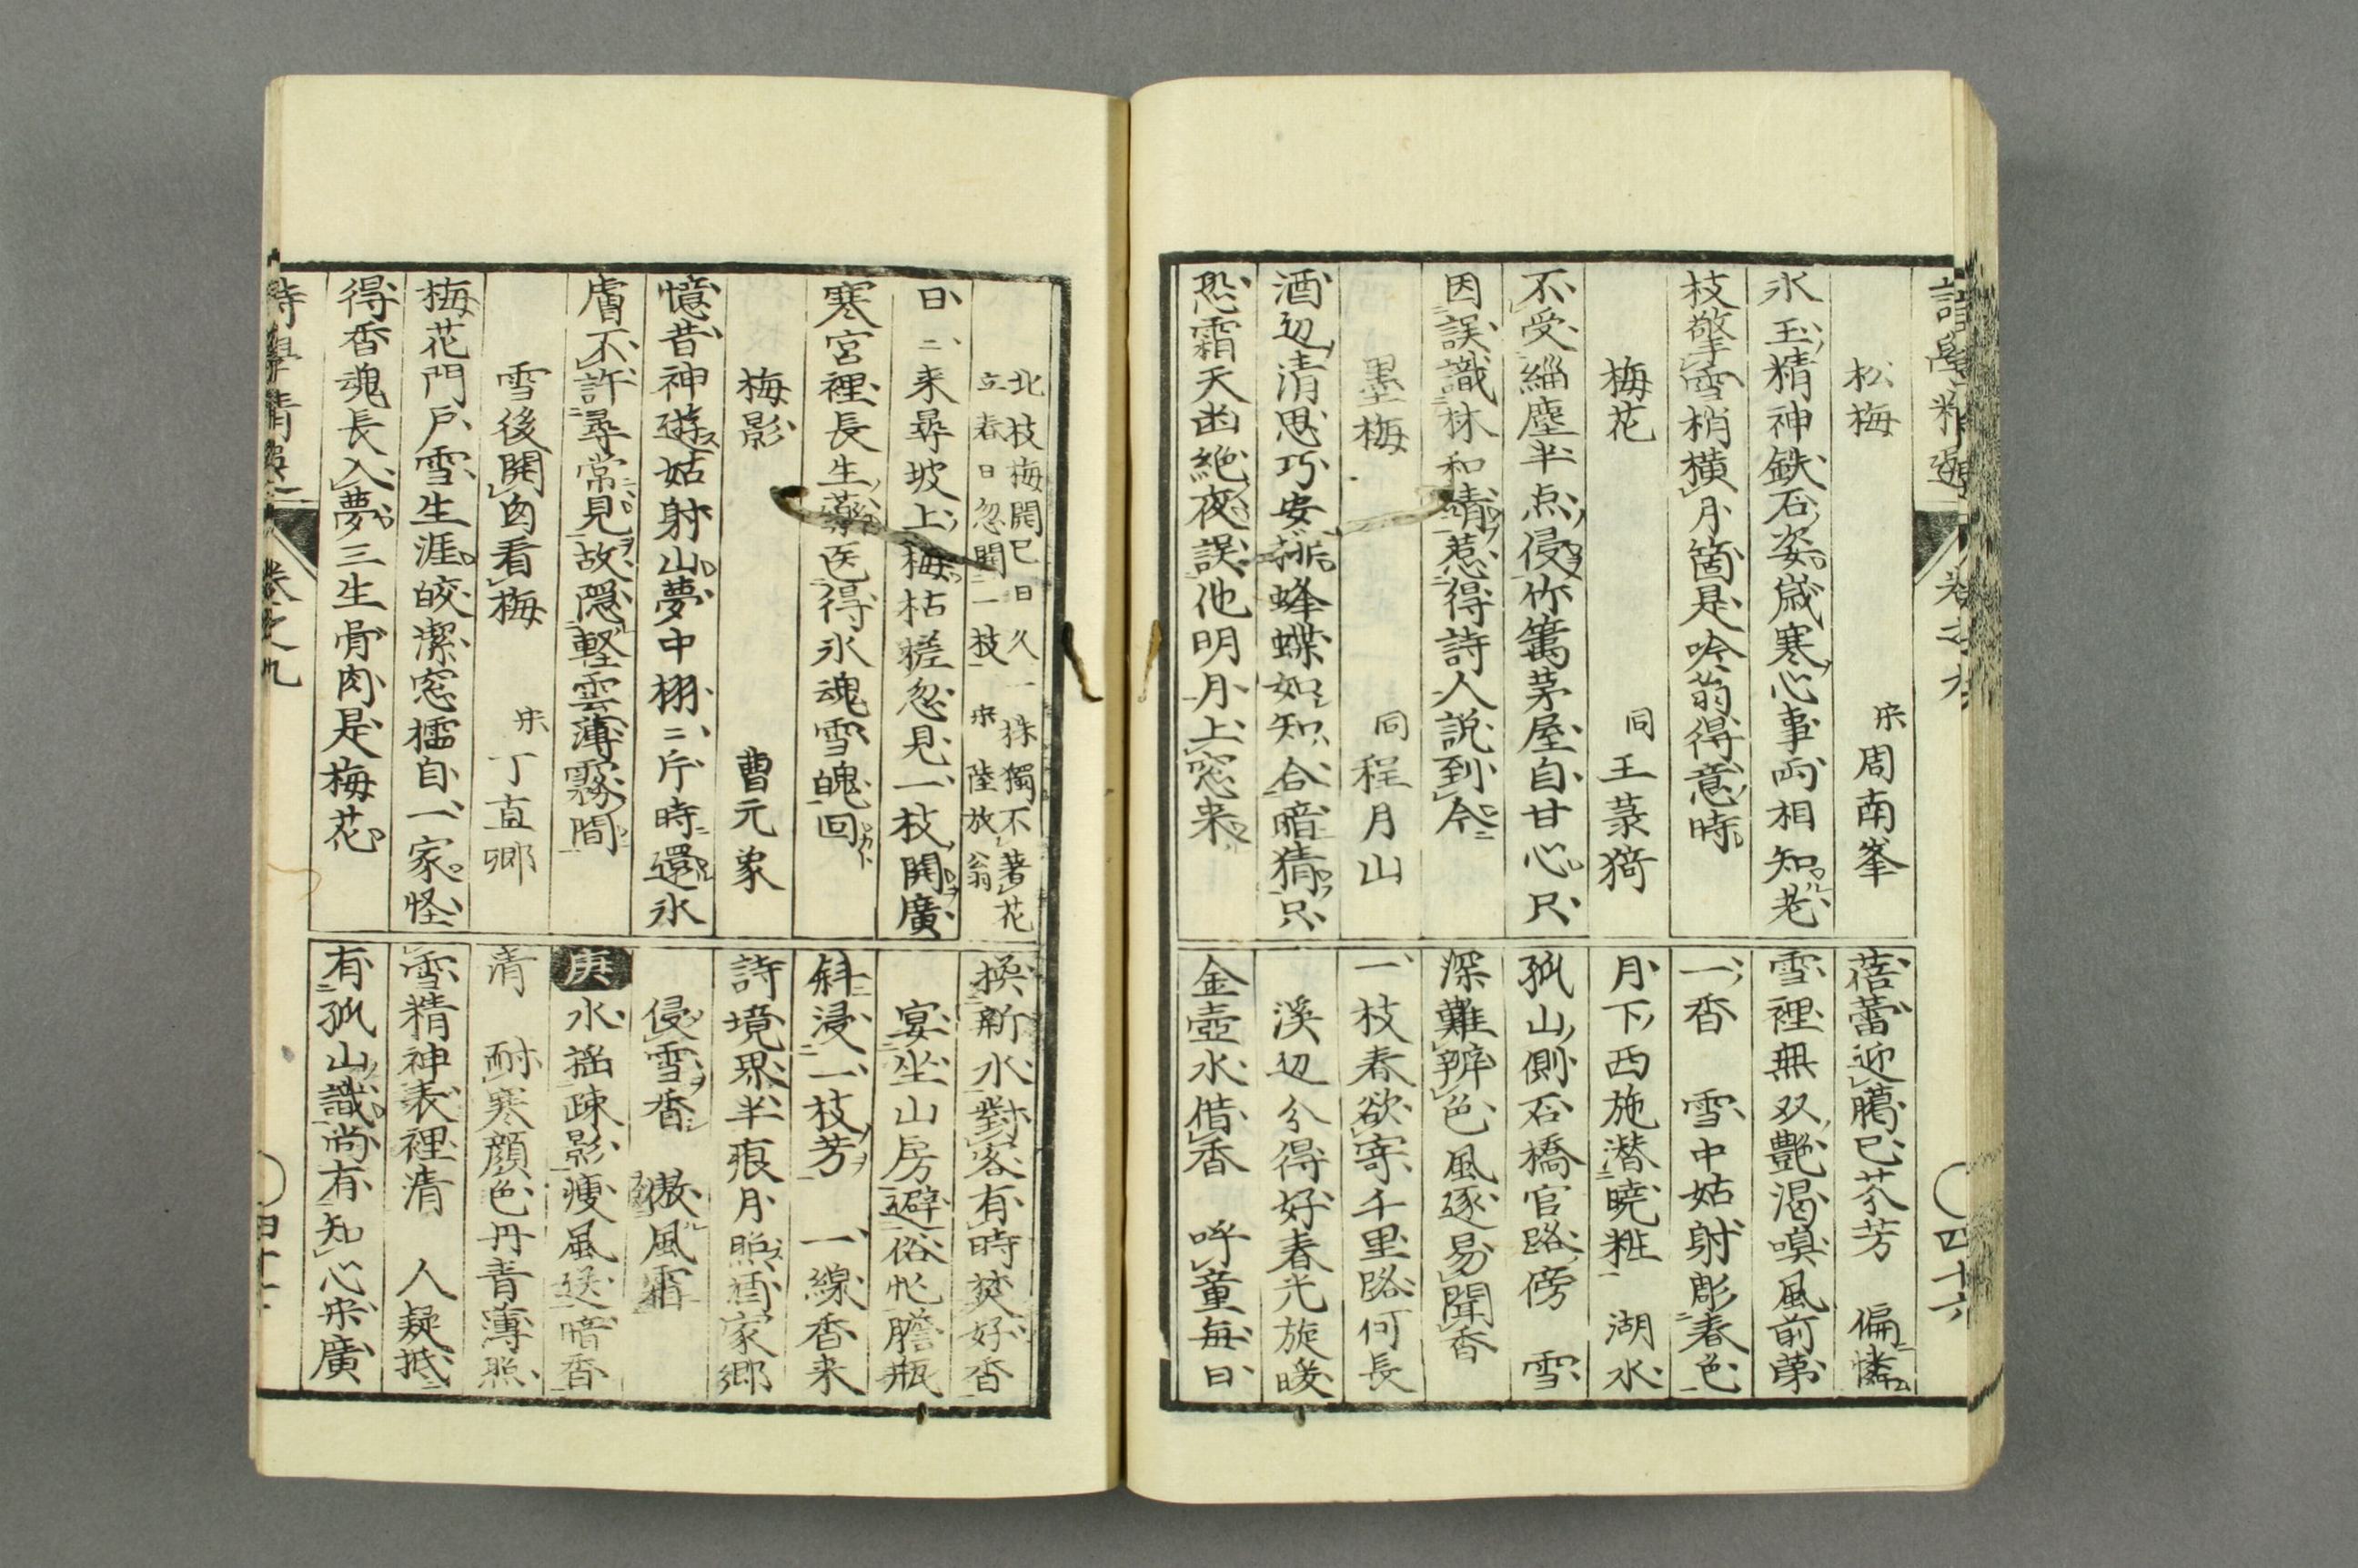 詩學精選 卷之九 四十六
松梅 宋 周南峯
氷玉精神鉄石姿歳寒心事両相知老
枝擎雪梢横月箇是吟翁得意時
梅花 同 王菉猗
不受緇塵半点侵竹篱茅屋自甘心只
因誤識林和靖惹得詩人説到今
墨梅 同 程月山
酒辺清思巧安排蜂蝶如知合暗猜只
恐霜天凾絶夜誤他明月上窓来
蓓蕾迎臈已芬芳 偏憐
雪裡無双艶渇嗅風前第
一香 雪中姑射彫春色
月下西施潜暁粧 湖水
孤山側石橋官路傍 雪
深難辨色風逐易聞香
一枝春欲寄千里路何長
溪辺分得好春光旋暖
金壺水借香 呼童毎日
北枝梅開已日久一株獨不著花
立春日忽開一枝 宋 陸放翁
日二来尋坡上梅枯槎忽見一枝開廣
寒宮裡長生藥医得氷魂雪魄回
梅影 曹元象
憶昔神遊姑射山夢中栩二片時還氷
膚不許尋常見故隠軽雲薄霧間
雪後開窗看梅 宋 丁直卿
梅花門戸雪生涯皎潔窓櫺自一家怪
得香魂長入夢三生骨肉是梅花
換新水對客有時焚好香
宴坐山房避俗忙膽瓶
斜浸一枝芳 一線香来
詩境界半痕月照酒家郷
侵雪香 傲風霜
庚 水揺疎影痩風送暗香
清 耐寒顔色丹青薄照
雪精神表裡清 人疑抵
有孤山識尚有知心宋廣
詩學精選 卷之九